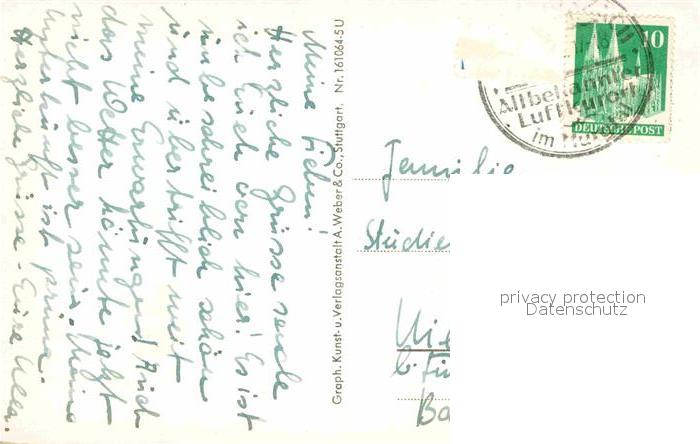 Meine Lieben!
Herzliche Grüsse sende
ich Euch von hier! Es ist
unbeschreiblich schön
und übertrifft weit
meine Erwartungen! Auch
das Wetter könnte jetzt
nicht besser sein. Meine
Unterkunft ist prima.
Herzliche Grüsse - Eure
Graph. Kunst- u. Verlagsanstalt A. Weber & Co., Stuttgart. Nr. 161064-5 U
10
DEUTSCHE POST
Altbekannter
Luftkurort
im
Familie
Studie
b. Fü
Ba
privacy protection
Datenschutz